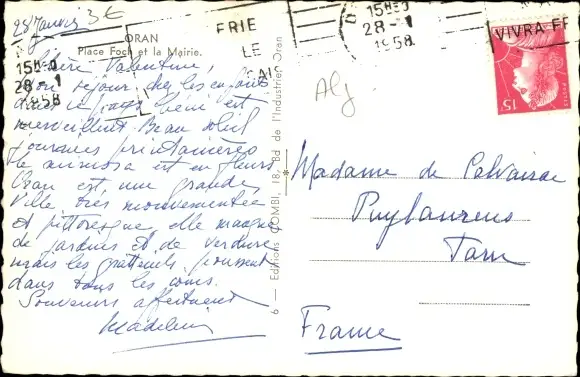 28 Janvier 3€
ORAN
Place Foch et la Mairie.
FRIE
LE
AIS
15H
28-1
1958
Chère Valentine,
Mon séjour chez les enfants
dans ce pays béni est
merveilleux Beau soleil
journées printanières
le mimosa est en fleurs
Oran est une grande
Ville très mouvementée
et pittoresque, elle manque
de jardins et de verdure
mais les gratteciels poussent
dans tous les coins.
Souvenirs affectueux
Madeleine
6 — Editions COMBI, 18, Bd de l'Industrie, Oran
15H
28-1
1958
VIVRA FR
15F
Alg
Madame de
Puylaurens
Tarn
France